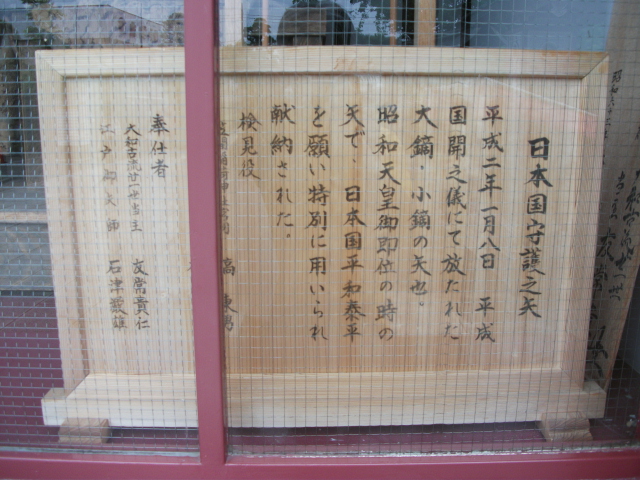 日本国守護之矢
平成二年一月八日 平成
国開之儀にて放たれた
大鏑・小鏑の矢也。
昭和天皇御即位の時の
矢で、日本国平和泰平
を願い特別に用いられ
献納された。
検見役
奉仕者
大和古流廿一世当主 友常貴仁
江戸御矢師 石津巌雄
昭和